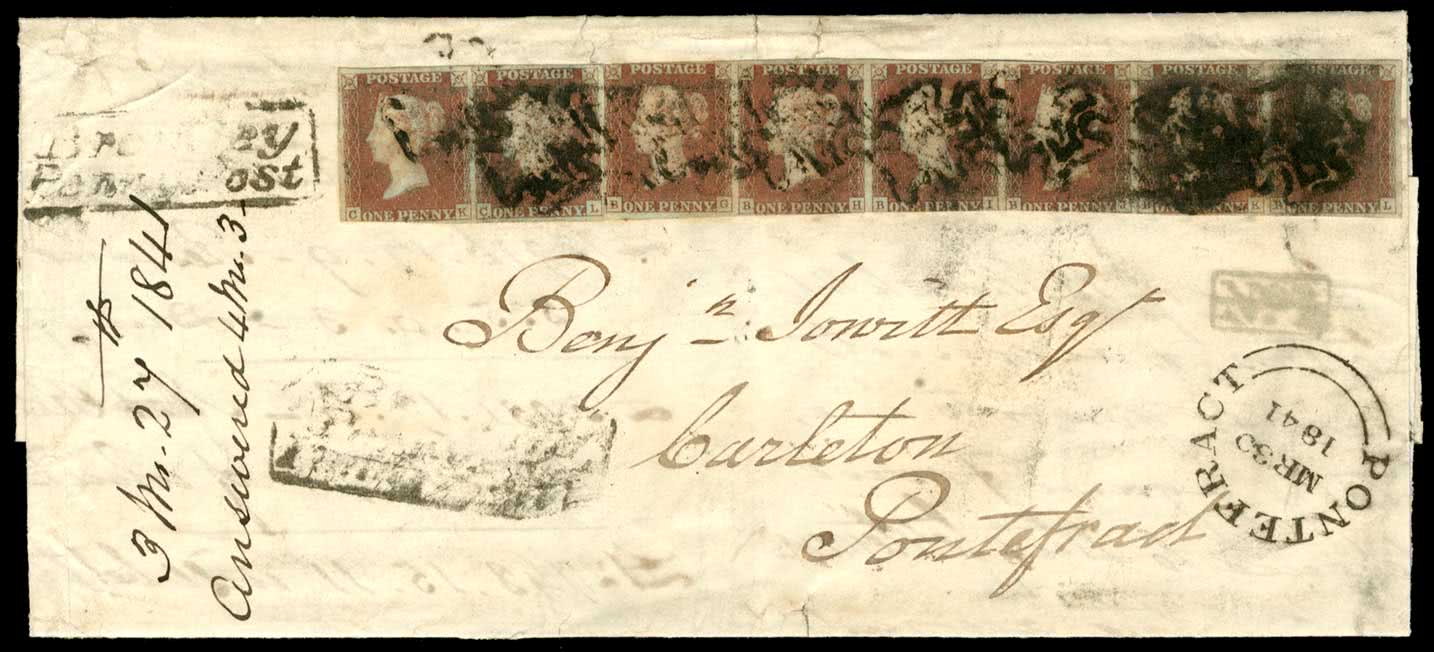 POSTAGE POSTAGE POSTAGE POSTAGE POSTAGE POSTAGE POSTAGE POSTAGE
C ONE PENNY K C ONE PENNY L B ONE PENNY G B ONE PENNY H B ONE PENNY I B ONE PENNY J B ONE PENNY K B ONE PENNY L
ey
Penny ost
3 Mo. 27 1841
Answered 4 Mo. 3
Benjn Jowitt Esqr
Carleton
Pontefract
PONTEFRACT
MR 30
1841